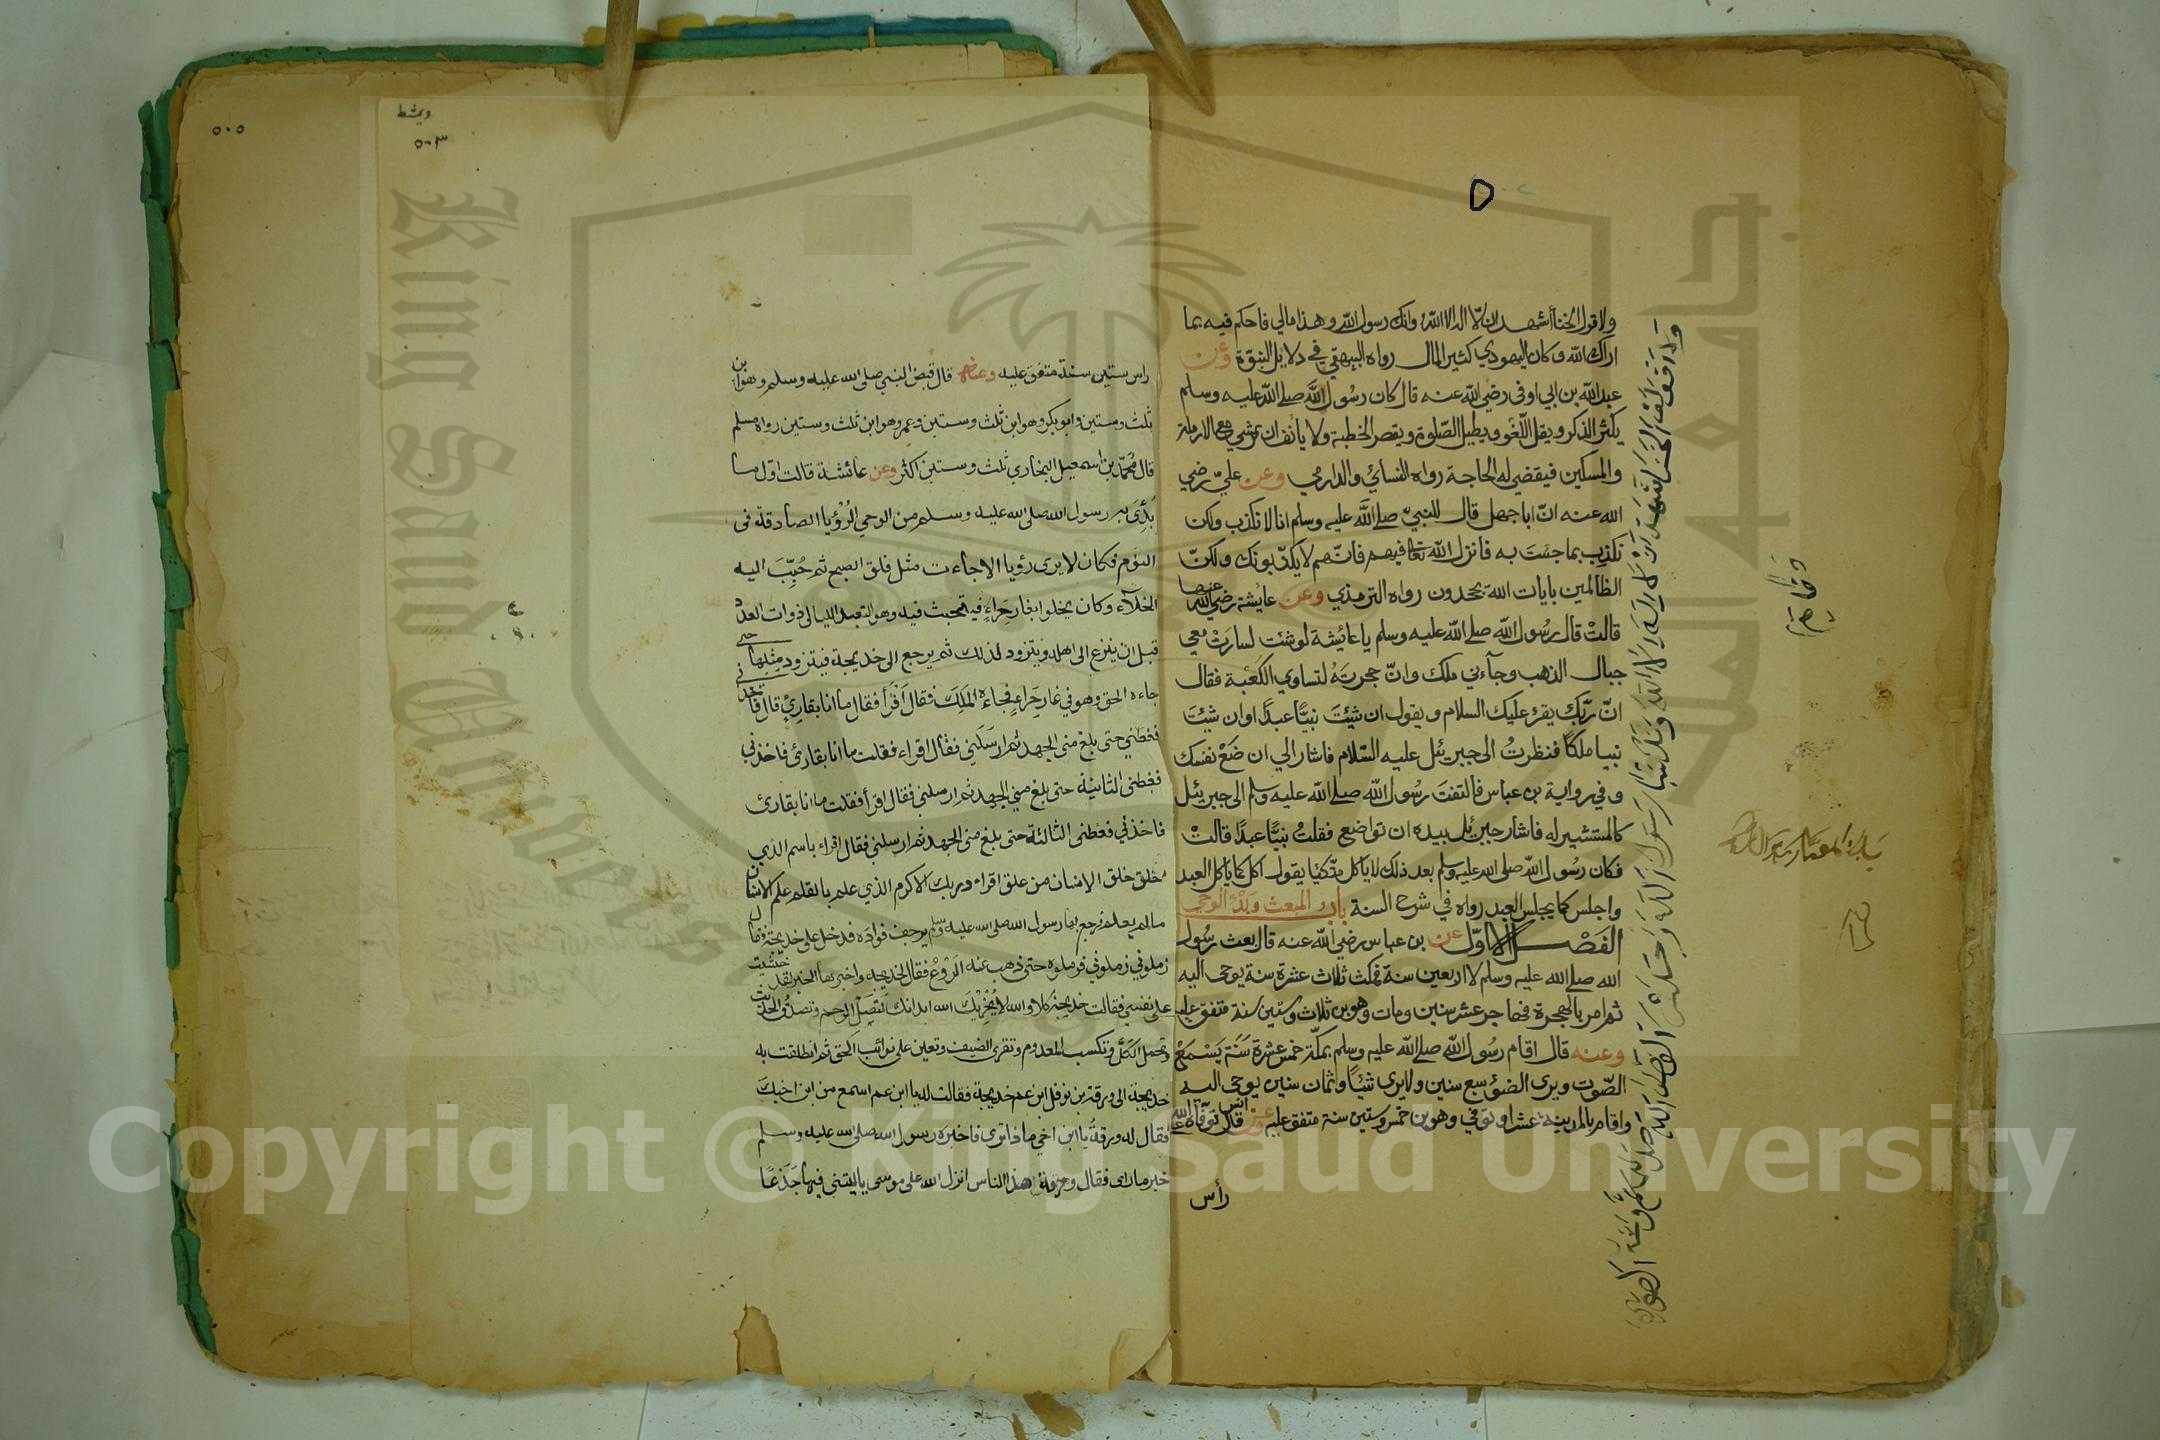 ولا قول الخنا أشهد ان لا اله الا الله وانك رسول الله وهذا مالي فاحكم فيه بما
اراك الله وكان اليهودي كثير المال رواه البيهقي في دلايل النبوة وعن
عبد الله بن ابي اوفى رضي الله عنه قال كان رسول الله صلى الله عليه وسلم
يكثر الذكر ويقل اللغو ويطيل الصلوة ويقصر الخطبة ولا يأنف ان يمشي مع الارملة
والمسكين فيقضي له الحاجة رواه النسائي والدارمي وعن علي رضي
الله عنه ان ابا جهل قال للنبي صلى الله عليه وسلم انا لا نكذب ولكن
نكذب بما جئت به فانزل الله تعالى فيهم فانهم لا يكذبونك ولكن
الظالمين بايات الله يجحدون رواه الترمذي وعن عايشة رضي الله عنها
قالت قال رسول الله صلى الله عليه وسلم يا عائشة لو شئت لسارت معي
جبال الذهب وجآءني ملك وان حجزته لتساوي الكعبة فقال
ان ربك يقرء عليك السلام ويقول ان شئت نبيا عبدا وان شئت
نبيا ملكا فنظرت الى جبريئل عليه السلام فاشار الي ان ضع نفسك
وفي رواية بن عباس فالتفت رسول الله صلى الله عليه وسلم الى جبريئل
كالمستشير له فاشار جبريئل بيده ان تواضع فقلت نبيا عبدا قالت
فكان رسول الله صلى الله عليه وسلم بعد ذلك لا ياكل متكئا يقول اكل كما ياكل العبد
واجلس كما يجلس العبد رواه في شرح السنة باب المبعث وبدء الوحي
الفصل الاول عن بن عباس رضي الله عنه قال بعث رسول
الله صلى الله عليه وسلم لاربعين سنة فمكث ثلاث عشرة سنة يوحى اليه
ثم امر بالهجرة فهاجر عشر سنين ومات وهو بن ثلاث وستين سنة متفق عليه
وعنه قال اقام رسول الله صلى الله عليه وسلم بمكة خمس عشرة سنة يسمع
الصوت ويرى الضوء سبع سنين ولا يرى شيئا وثمان سنين يوحى اليه
واقام بالمدينة عشرا وتوفي وهو بن خمس وستين سنة متفق عليه وعن انس قال توفاه الله
رأس
دمشط
٥٠٣
٥٠٥
راس ستين سنة متفق عليه وعنه قال قبض النبي صلى الله عليه وسلم وهو ابن
ثلث وستين وابو بكر وهو ابن ثلث وستين وعمر وهو ابن ثلث وستين رواه مسلم
قال محمد بن اسمعيل البخاري ثلث وستين اكثر وعن عائشة قالت اول ما
بدئ به رسول الله صلى الله عليه وسلم من الوحي الرؤيا الصادقة في
النوم فكان لا يرى رؤيا الا جاءت مثل فلق الصبح ثم حبب اليه
الخلآء وكان يخلوا بغار حراء فيتحنث فيه وهو التعبد الليالى ذوات العدد
قبل ان ينزع الى اهله ويتزود لذلك ثم يرجع الى خديجة فيتزود مثلها حتى
جاءه الحق وهو في غار حراء فجاءه الملك فقال اقرأ فقال ما انا بقارئ قال فاخذني
فغطني حتى بلغ مني الجهد ثم ارسلني فقال اقراء فقلت ما انا بقارئ فاخذني
فغطنى الثانية حتى بلغ مني الجهد ثم ارسلني فقال اقرأ فقلت ما انا بقارئ
فاخذني فغطني الثالثة حتى بلغ مني الجهد ثم ارسلني فقال اقراء باسم الذي
خلق خلق الانسان من علق اقراء وربك الاكرم الذي علم بالقلم علم الانسان
ما لم يعلم فرجع بها رسول الله صلى الله عليه وسلم يرجف فواده فدخل على خديجة فقال
زملوني زملوني فزملوه حتى ذهب عنه الروع فقال لخديجة واخبرها الخبر لقد خشيت
على نفسي فقالت خديجة كلا والله لا يخزيك الله ابدا انك لتصل الرحم وتصدق الحديث
وتحمل الكل وتكسب المعدوم وتقري الضيف وتعين على نوائب الحق ثم انطلقت به
خديجة الى ورقة بن نوفل ابن عم خديجة فقالت له يا ابن عم اسمع من ابن اخيك
فقال له ورقة يا ابن اخي ماذا ترى فاخبره رسول الله صلى الله عليه وسلم
خبر ما راى فقال ورقة هذا الناس انزل الله على موسى يا ليتني فيها جذعا
King Saud University
Copyright © King Saud University